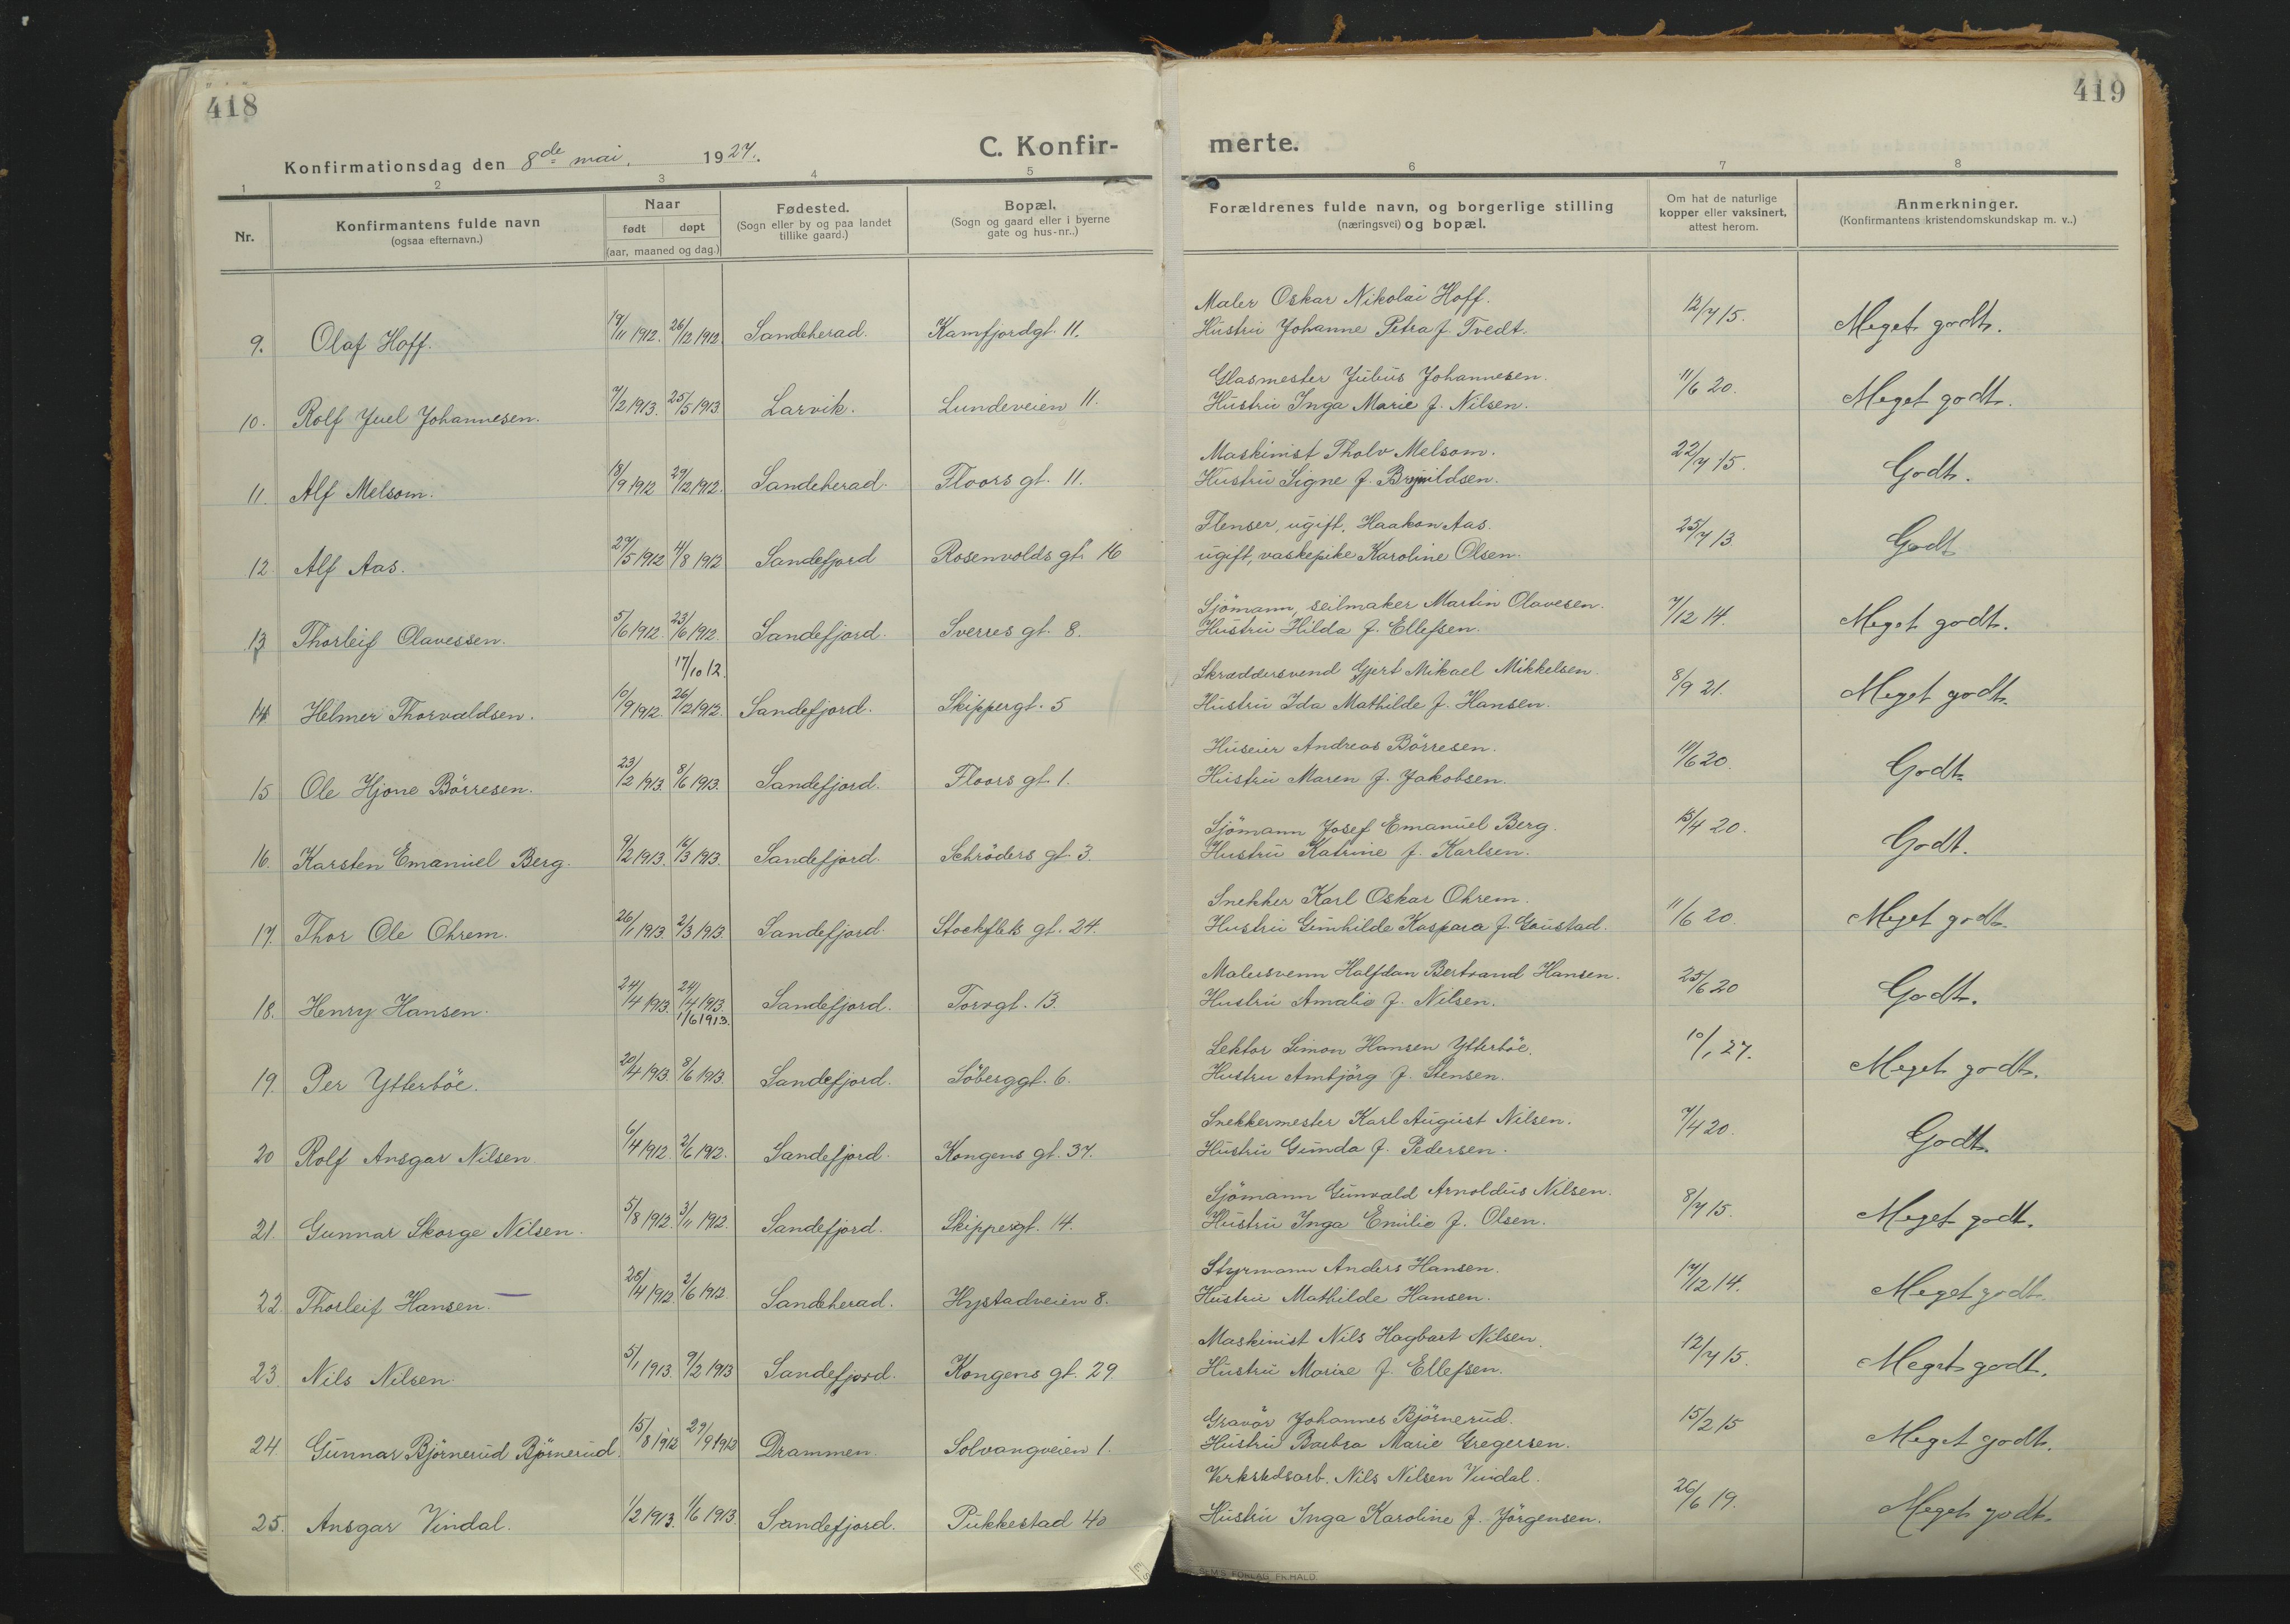 418
Konfirmationsdag den 8de mai, 1927.
C. Konfir-
1 2 3 4 5
Nr.
Konfirmantens fulde navn
(ogsaa efternavn.)
Naar
født døpt
(aar, maaned og dag.)
Fødested.
(Sogn eller by og paa landet
tillike gaard.)
Bopæl,
(Sogn og gaard eller i byerne
gate og hus-nr..)
9. Olaf Hoff. 19/11 1912. 26/12 1912. Sandeherad. Kamfjordgt. 11.
10. Rolf Juel Johannesen. 7/2 1913. 25/5 1913. Larvik. Lundeveien 11.
11. Alf Melsom. 18/9 1912 29/12 1912. Sandeherad. Floors gt. 11.
12. Alf Aas. 29/5 1912 4/8 1912 Sandefjord Rosenvolds gt. 16
13 Thorleif Olavessen. 5/6 1912. 23/6 1912. Sandefjord. Sverres gt. 8.
17/10 12.
14 Helmer Thorvaldsen. 10/9 1912. 26/12 1912. Sandefjord. Skippergt. 5
15 Ole Hjone Börresen. 23/2 1913. 8/6 1913. Sandefjord. Floors gt. 1.
16. Karsten Emanuel Berg. 9/2 1913. 16/3 1913. Sandefjord. Schröders gt. 3.
17. Thor Ole Ohrem. 26/1 1913. 2/3 1913. Sandefjord. Stockflets gt. 24.
18. Henry Hansen. 24/4 1913. 24/4 1913. Sandefjord. Torvgt. 13.
1/6 1913.
19. Per Ytterböe. 20/4 1913. 8/6 1913. Sandefjord. Söberggt. 6.
20 Rolf Ansgar Nilsen 6/4 1912. 2/6 1912. Sandefjord. Kongens gt. 37.
21. Gunnar Skorge Nilsen. 5/8 1912. 3/11 1912. Sandefjord. Skippergt. 14.
22. Thorleif Hansen. 28/4 1912. 2/6 1912 Sandeherad. Hystadveien 8.
23. Nils Nilsen. 5/1 1913. 9/2 1913 Sandefjord. Kongens gt. 29
24. Gunnar Björnerud Björnerud. 15/8 1912 29/9 1912 Drammen. Solvangveien 1.
25. Ansgar Vindal. 1/2 1913. 1/6 1913 Sandefjord. Pukkestad 40
419
merte.
6 7 8
Forældrenes fulde navn, og borgerlige stilling
(næringsvei) og bopæl.
Om hat de naturlige
kopper eller vaksinert,
attest herom.
Anmerkninger.
(Konfirmantens kristendomskundskap m. v..)
Maler Oskar Nikolai Hoff.
Hustru Johanne Petra f. Tvedt. 12/7 15. Meget godt.
Glasmester Julius Johannesen.
Hustru Inga Marie f. Nilsen. 11/6 20. Meget godt.
Maskinist Tholv Melsom.
Hustru Signe f. 22/7 15. Godt.
Flenser, ugift, Haakon Aas.
ugift, vaskepike Karoline Olsen. 25/7 13. Godt
Sjömann, seilmaker Martin Olavesen.
Hustru Hilda f. Ellefsen. 7/12 14. Meget godt.
Skræddersvend Gjert Mikael Mikkelsen.
Hustru Ida Mathilde f. Hansen. 8/9 21. Meget godt.
Huseier Andreas Börresen.
Hustru Maren f. Jakobsen. 11/6 20. Godt.
Sjömann Josef Emanuel Berg.
Hustru Katrine f. Karlsen. 15/4 20. Godt.
Snekker Karl Oskar Ohrem.
Hustru Gunhilde Kaspara f. Goustad. 11/6 20. Meget godt.
Malersvenn Halfdan Bertrand Hansen.
Hustru Amalie f. Nilsen. 25/6 20 Godt.
Lektor Simon Hansen Ytterböe.
Hustru Ambjörg f. Stensen. 10/1 27. Meget godt.
Snekkermester Karl August Nilsen.
Hustru Gunda f. Pedersen. 7/4 20. Godt.
Sjömann Gunvald Arnoldus Nilsen.
Hustru Inga Emilie f. Olsen. 8/7 15. Meget godt.
Styrmann Anders Hansen.
Hustru Mathilde Hansen. 17/12 14. Meget godt.
Maskinist Nils Hagbart Nilsen.
Hustru Marie f. Ellefsen. 12/7 15. Meget godt.
Gravör Johannes Björnerud.
Hustru Barbra Marie Gregersen. 15/2 15 Meget godt.
Verkstedsarb. Nils Nilsen Vindal.
Hustru Inga Karoline f. Jörgensen. 26/6 19. Meget godt.
SEM'S FORLAG FR. HALD.